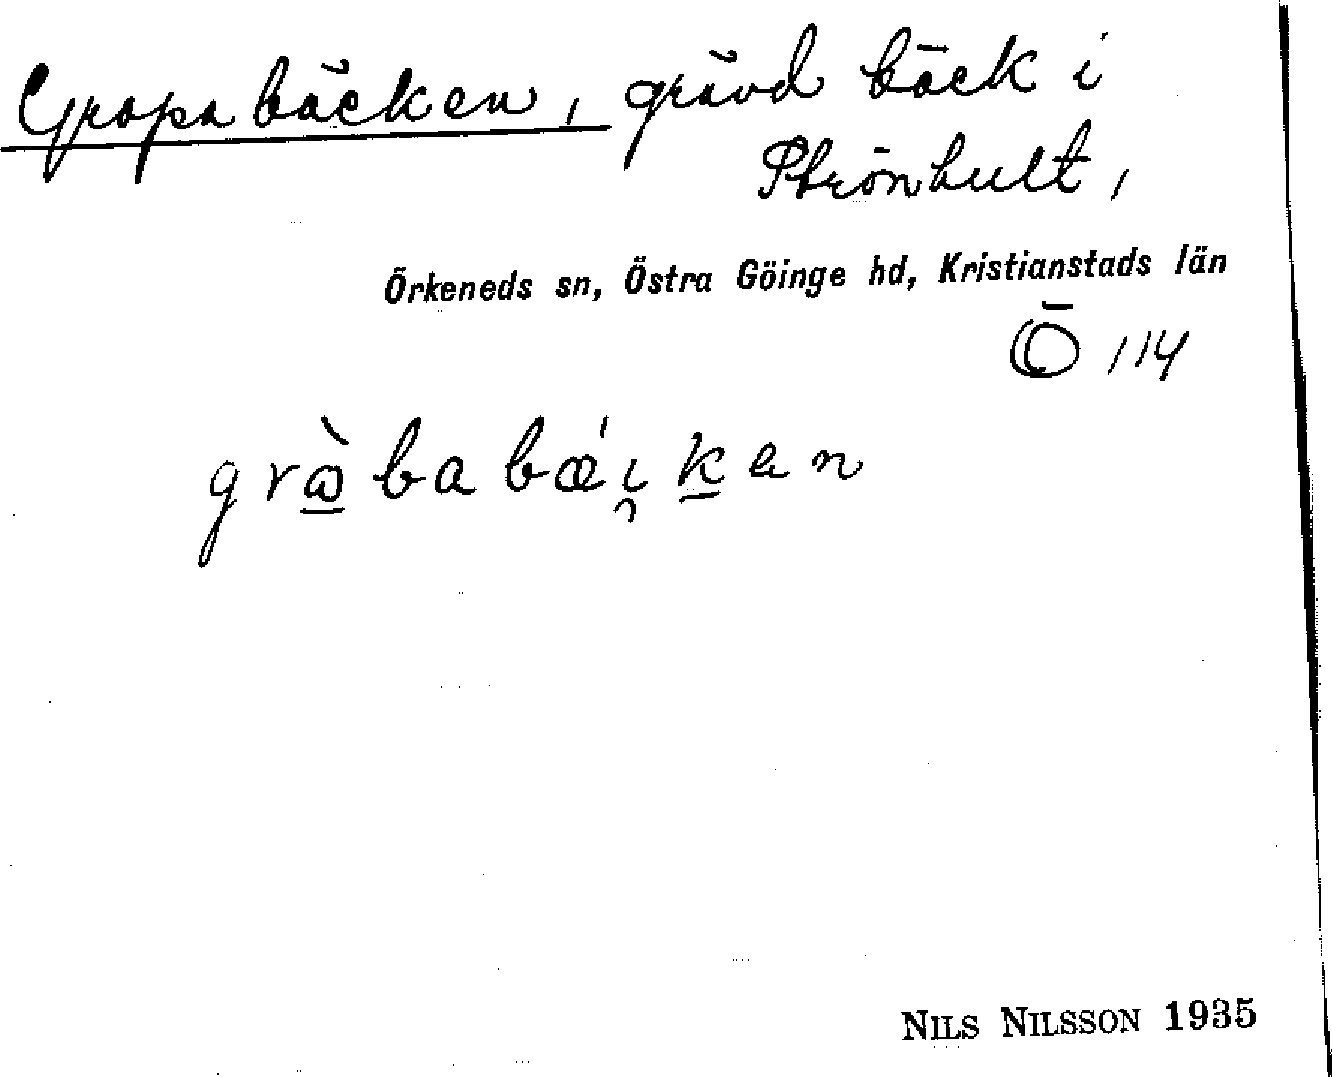 Gropabäcken, grävd bäck i
Strönhult,
Örkeneds sn, Östra Göinge hd, Kristianstads län
Ö 114
gràbabǽi̯ken
NILS NILSSON 1935